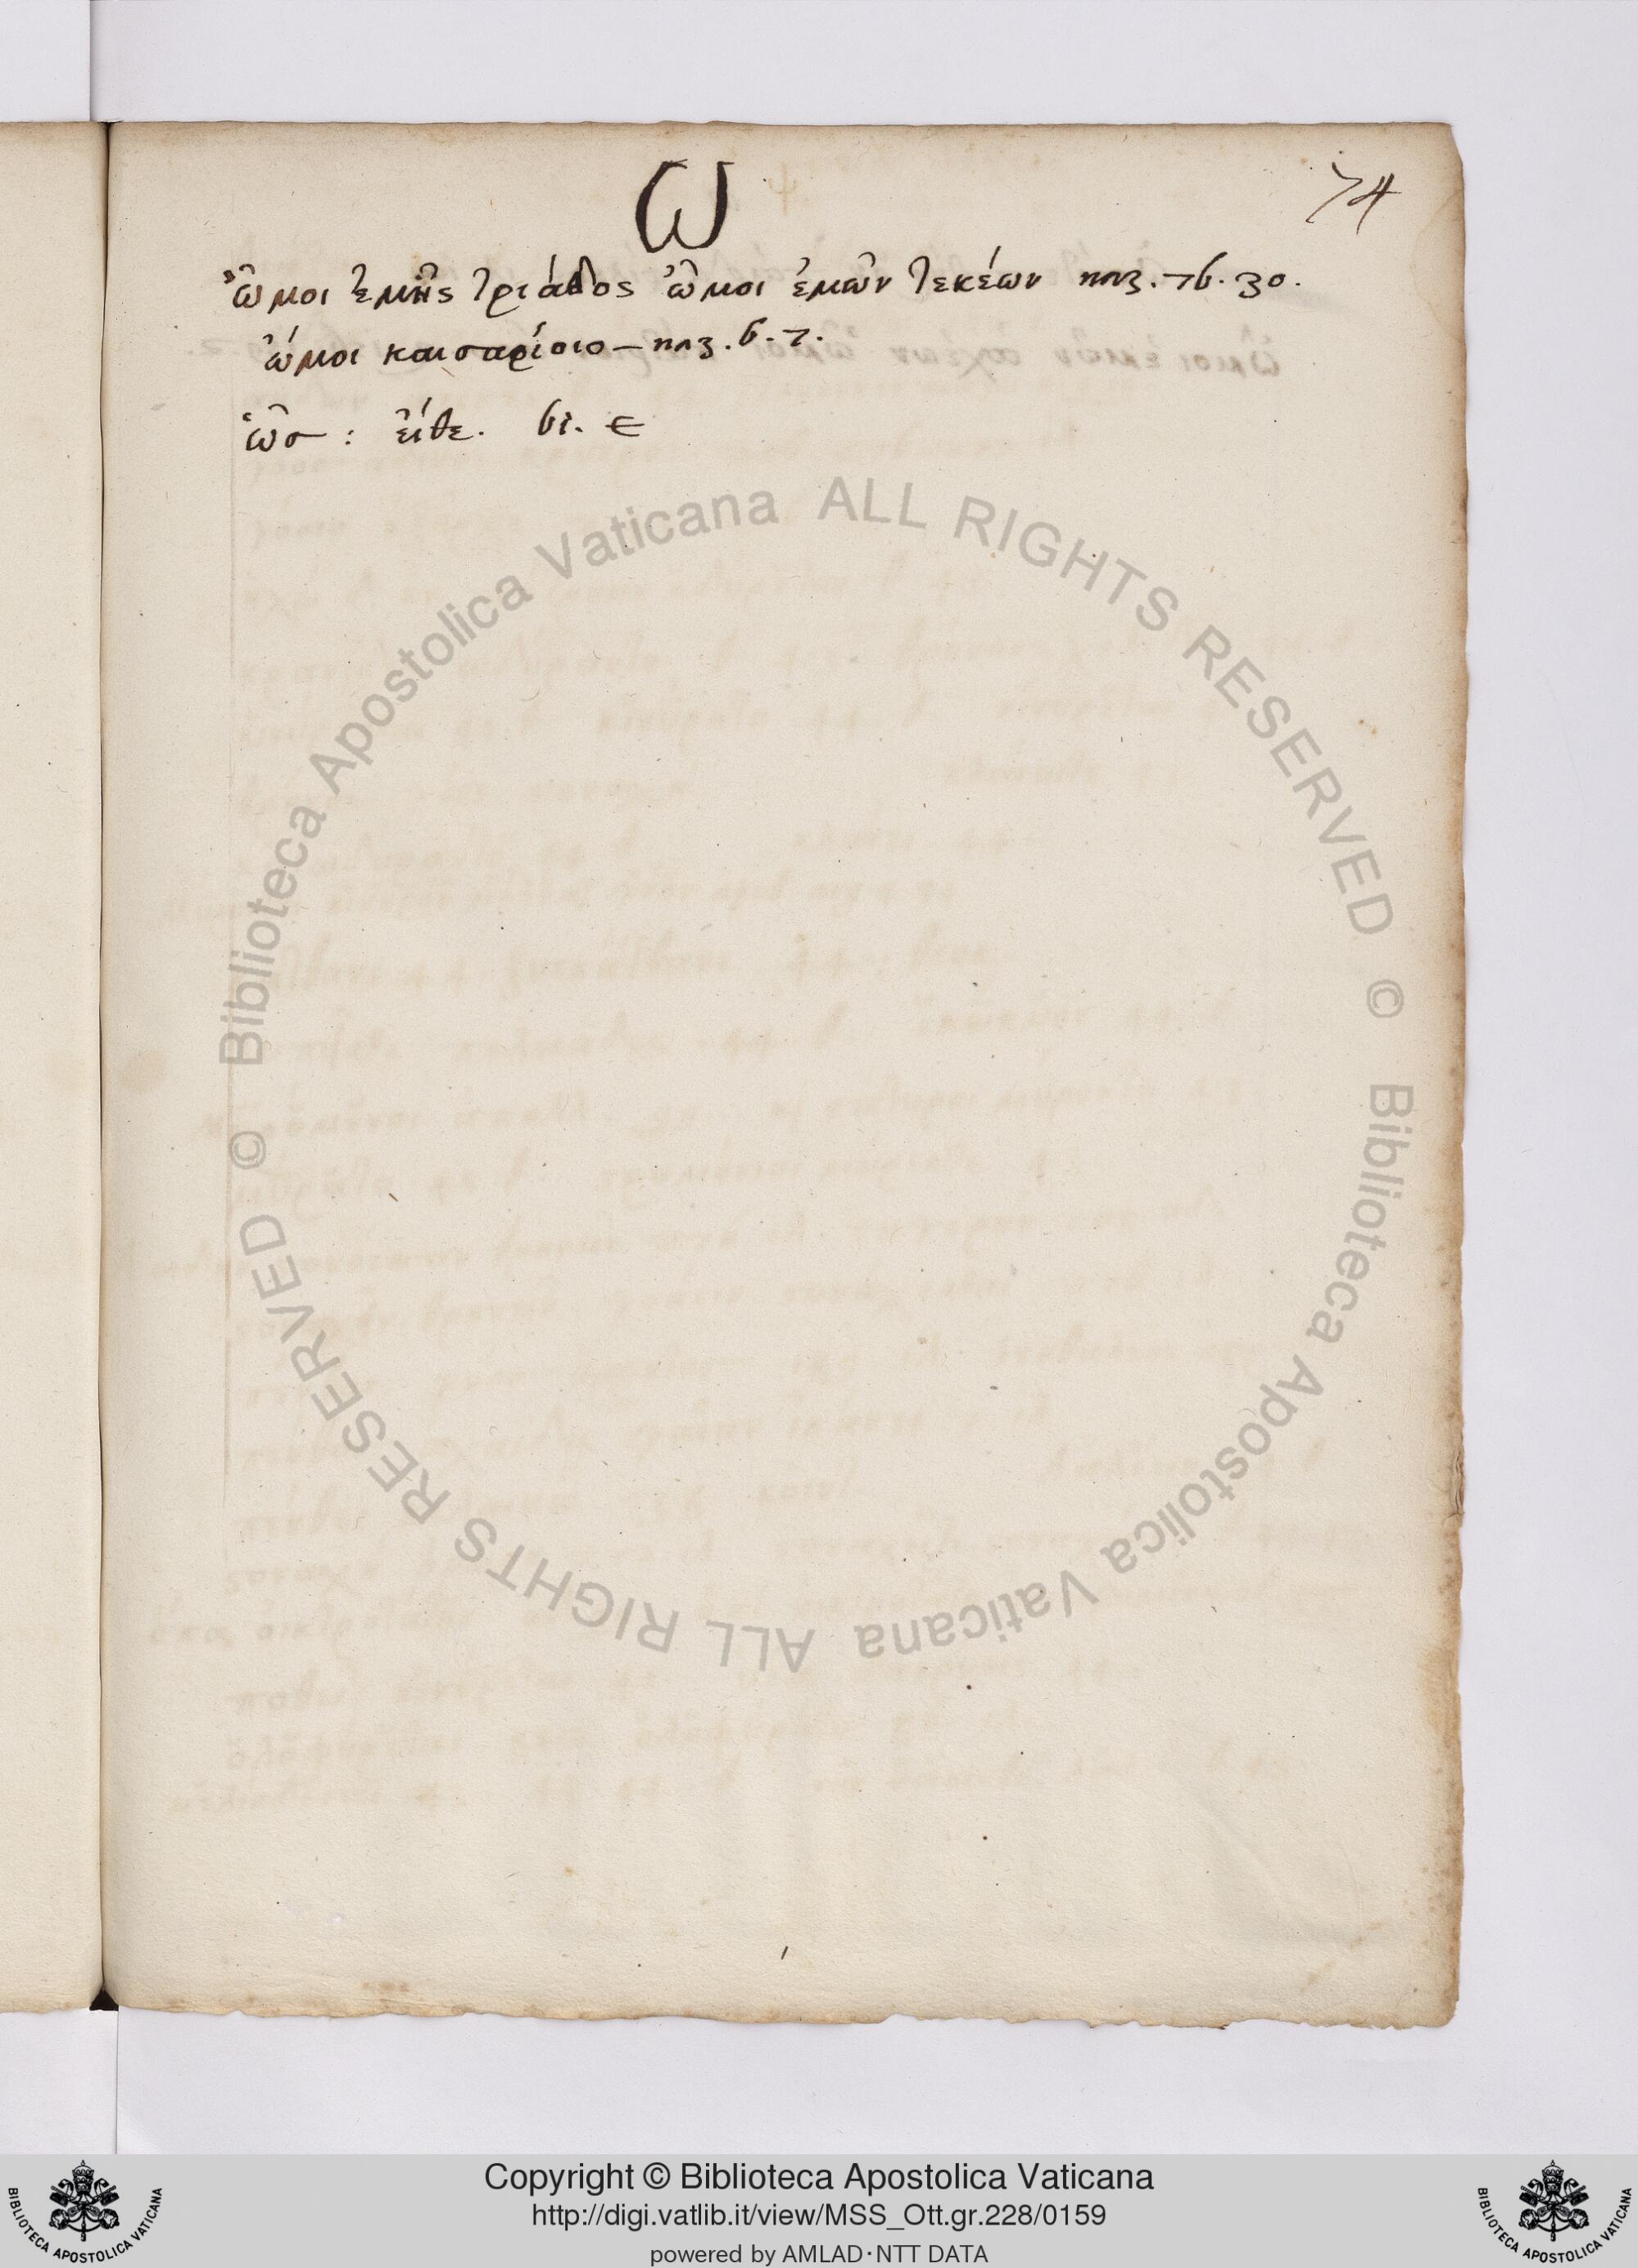 ω
74
ὤμοι ἐμῆς τριάδος ὤμοι ἐμῶν τεκέων ναζ. 76. 30.
ὤμοι καισαρίοιο — ναζ. 6. 7.
ὣσ : εἴθε. 61. ε
© Biblioteca Apostolica Vaticana ALL RIGHTS RESERVED
© Biblioteca Apostolica Vaticana ALL RIGHTS RESERVED
Copyright © Biblioteca Apostolica Vaticana
http://digi.vatlib.it/view/MSS_Ott.gr.228/0159
powered by AMLAD·NTT DATA
BIBLIOTECA APOSTOLICA VATICANA
BIBLIOTECA APOSTOLICA VATICANA